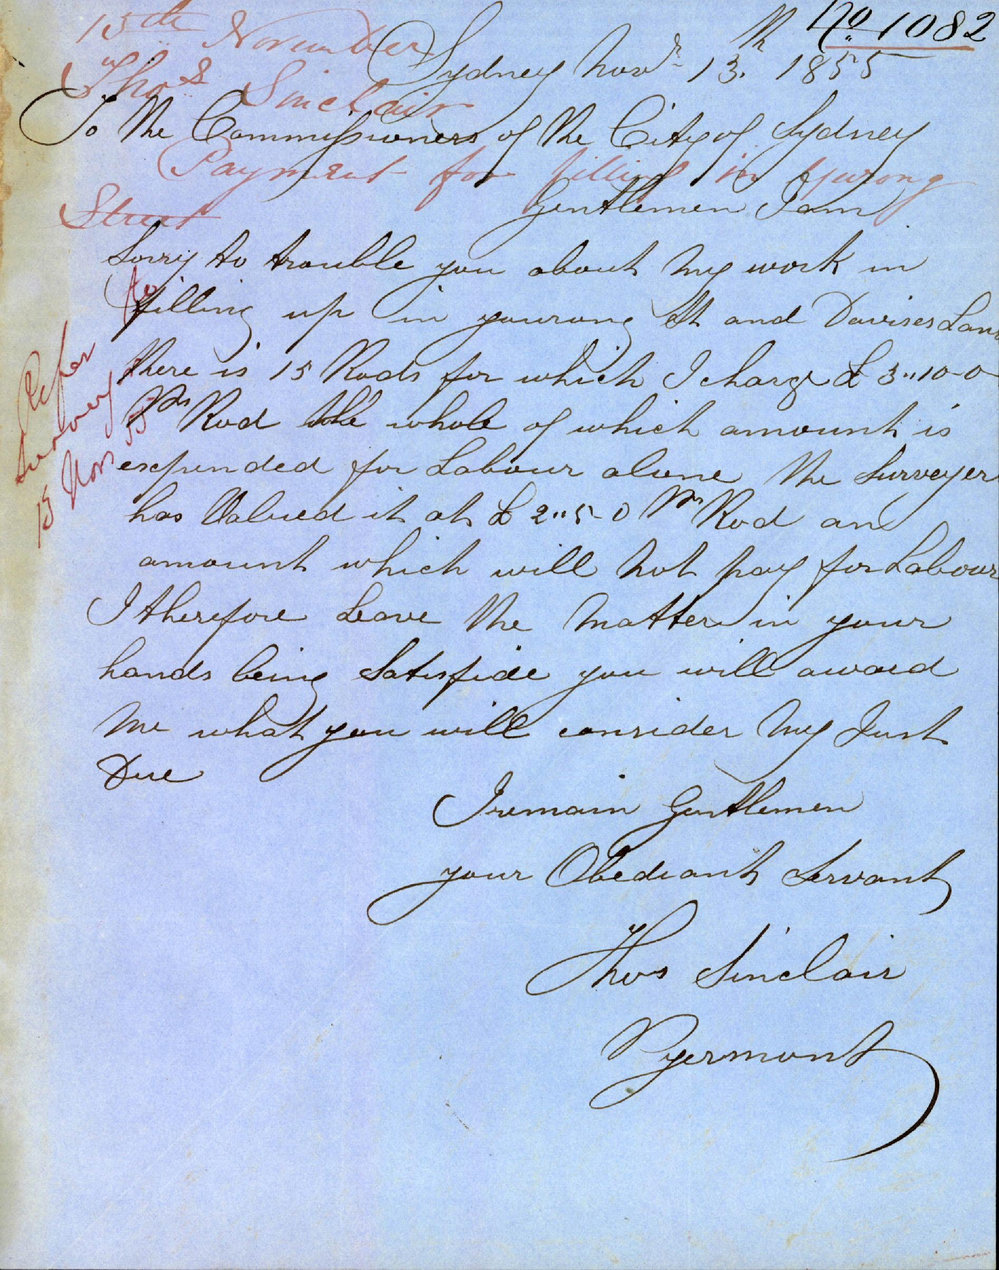 No 1082
15th November
Thos Sinclair
Sydney Novr 13th 1855
To the Commissioners of the City of Sydney
Payment for filling in Yurong
Street
Gentlemen I am
Sorry to trouble you about my work in
filling up in yourong St and Davises Land
there is 15 Rods for which I charge £3"10-0
Pr Rod the whole of which amount is
expended for Labour alone the Surveyer
has Valued it at £2"5-0 Pr Rod an
amount which will not pay for Labour
I therefore Leave the matter in your
hands being Satisfide you will award
me what you will consider my Just
Due
I remain Gentlemen
your Obediant Servant
Thos Sinclair
Pyermont
Refer to
Surveyor
15 Nov 55